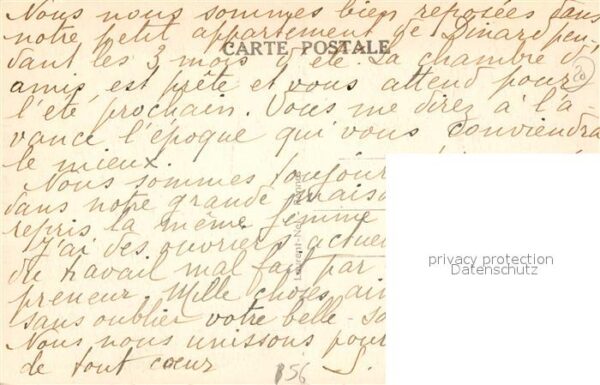 Nous nous sommes bien reposées dans
notre petit appartement de Dinard pen-
CARTE POSTALE
dant les 3 mois d'été. La chambre d'
amis est prête et vous attend pour
l'été prochain. Vous me direz à l'a-
vance l'époque qui vous conviendra
le mieux.
Nous sommes toujour
dans notre grande maiso
repris la même femme
J'ai des ouvriers actue
du travail mal fait par
preneur. Mille choses ai
sans oublier votre belle-so
Nous nous unissons pour
de tout cœur
S.
156
20
Laurent-Nel
Rennes
privacy protection
Datenschutz